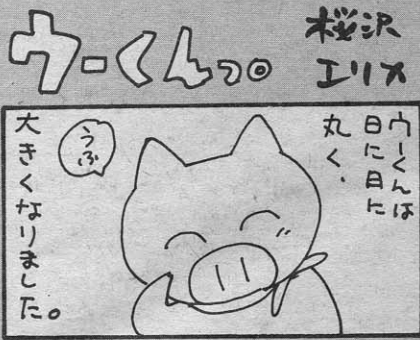 ウーくんっ。
桜沢
エリス
ウーくんは
日に日に
丸く、
うふ
大きくなりました。